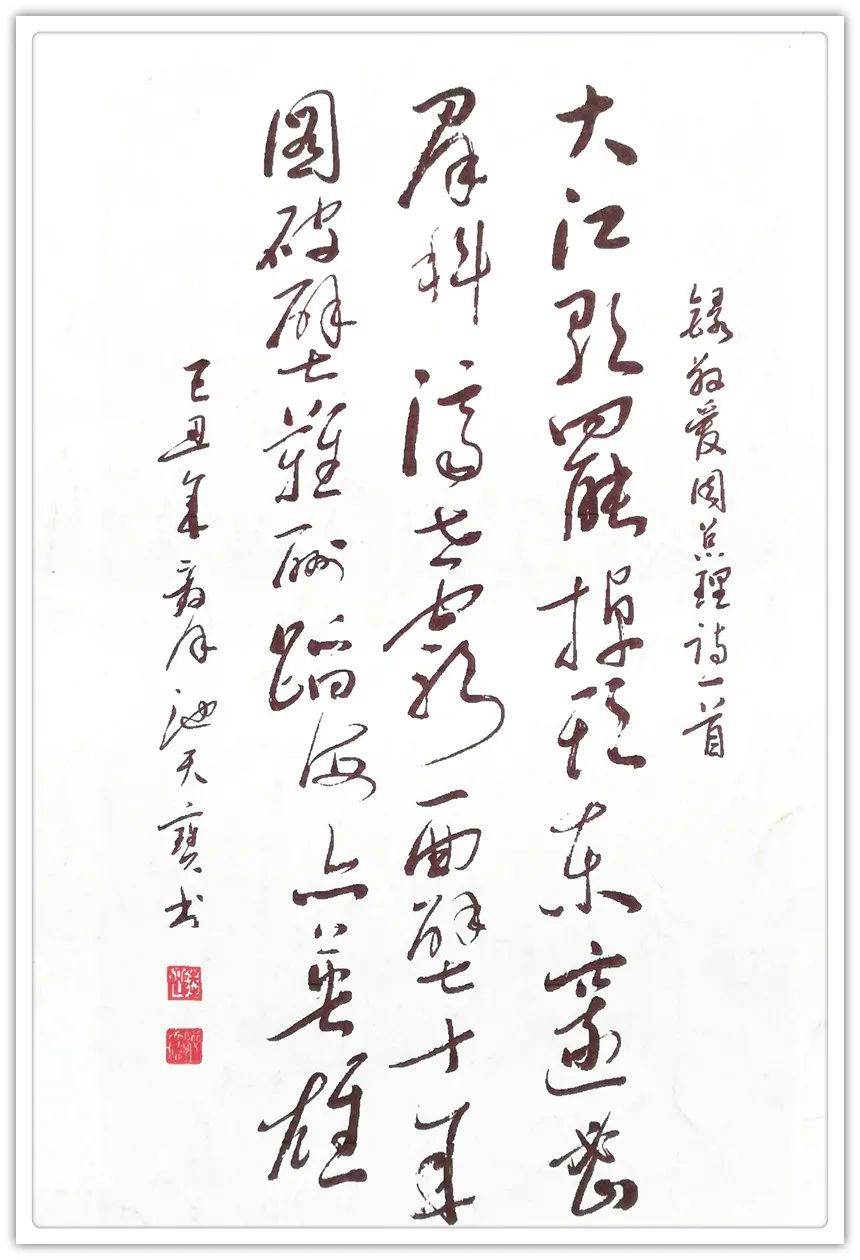 録敬愛周总理詩一首
大江歌罷掉頭東邃密
群科濟世窮面壁十年
圖破壁難酬蹈海亦英雄
己丑年月池天寶书